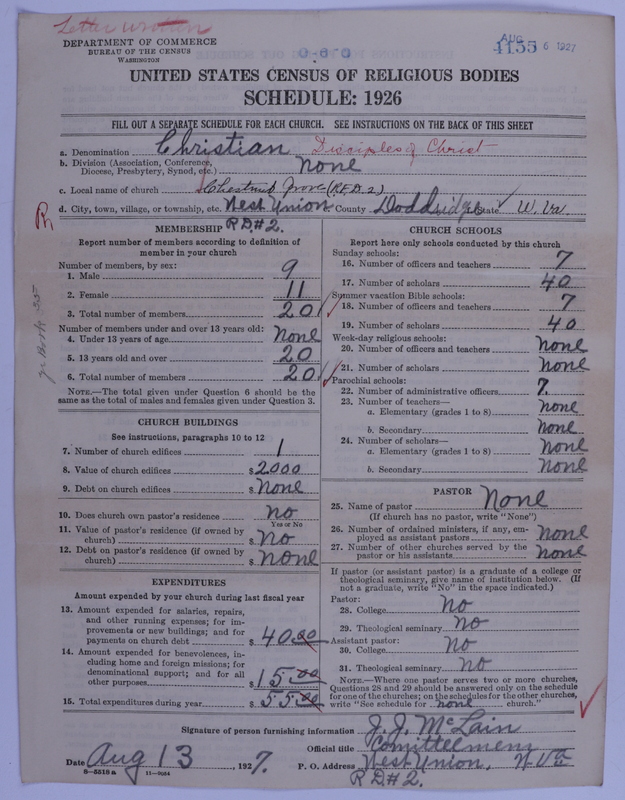 Letter written
DEPARTMENT OF COMMERCE
BUREAU OF THE CENSUS
WASHINGTON
AUG 6 1927
4155
UNITED STATES CENSUS OF RELIGIOUS BODIES
SCHEDULE: 1926
FILL OUT A SEPARATE SCHEDULE FOR EACH CHURCH. SEE INSTRUCTIONS ON THE BACK OF THIS SHEET
a. Denomination Christian Disciples of Christ
b. Division (Association, Conference, Diocese, Presbytery, Synod, etc.) none
c. Local name of church Chestnut Grove (R.F.D. 2)
d. City, town, village, or township, etc. West Union County Doddridge State W. Va.
R D# 2.
MEMBERSHIP
Report number of members according to definition of
member in your church
Number of members, by sex:
1. Male 9
2. Female 11
3. Total number of members 20
Number of members under and over 13 years old:
4. Under 13 years of age none
5. 13 years old and over 20
6. Total number of members 20
NOTE.—The total given under Question 6 should be
same as the total of males and females given under Question 3.
CHURCH BUILDINGS
See instructions, paragraphs 10 to 12
7. Number of church edifices 1
8. Value of church edifices $2000
9. Debt on church edifices $ None
10. Does church own pastor's residence? no
Yes or No
11. Value of pastor's residence (if owned by
church) $ No
12. Debt on pastor's residence (if owned by
church) $ none
EXPENDITURES
Amount expended by your church during last fiscal year
13. Amount expended for salaries, repairs,
and other running expenses; for im-
provements or new buildings; and for
payments on church debt $ 40.00
14. Amount expended for benevolences, in-
cluding home and foreign missions; for
denominational support; and for all
other purposes $ 15.00
15. Total expenditures during year $ 55.00
CHURCH SCHOOLS
Report here only schools conducted by this church
Sunday schools:
16. Number of officers and teachers 7
17. Number of scholars 40
Summer vacation Bible schools:
18. Number of officers and teachers 7
19. Number of scholars 40
Week-day religious schools:
20. Number of officers and teachers none
21. Number of scholars none
Parochial schools:
22. Number of administrative officers 7.
23. Number of teachers—
a. Elementary (grades 1 to 8) none
b. Secondary none
24. Number of scholars—
a. Elementary (grades 1 to 8) none
b. Secondary none
PASTOR
25. Name of pastor None
(If church has no pastor, write "None")
26. Number of ordained ministers, if any, em-
ployed as assistant pastors none
27. Number of other churches served by the
pastor or his assistants none
If pastor (or assistant pastor) is a graduate of a college or
theological seminary, give name of institution below. (If
not a graduate, write "No" in the space indicated.)
Pastor:
28. College No
29. Theological seminary No
Assistant pastor:
30. College No
31. Theological seminary No
NOTE.—Where one pastor serves two or more churches,
Questions 28 and 29 should be answered only on the schedule
for one of the churches; on the schedules for the other churches,
write "See schedule for none church."
Signature of person furnishing information J. J. McLain
Official title Committeemeny
Date Aug 13, 1927. P. O. Address West Union, W Va
R D# 2.
8—5518a 11—9054